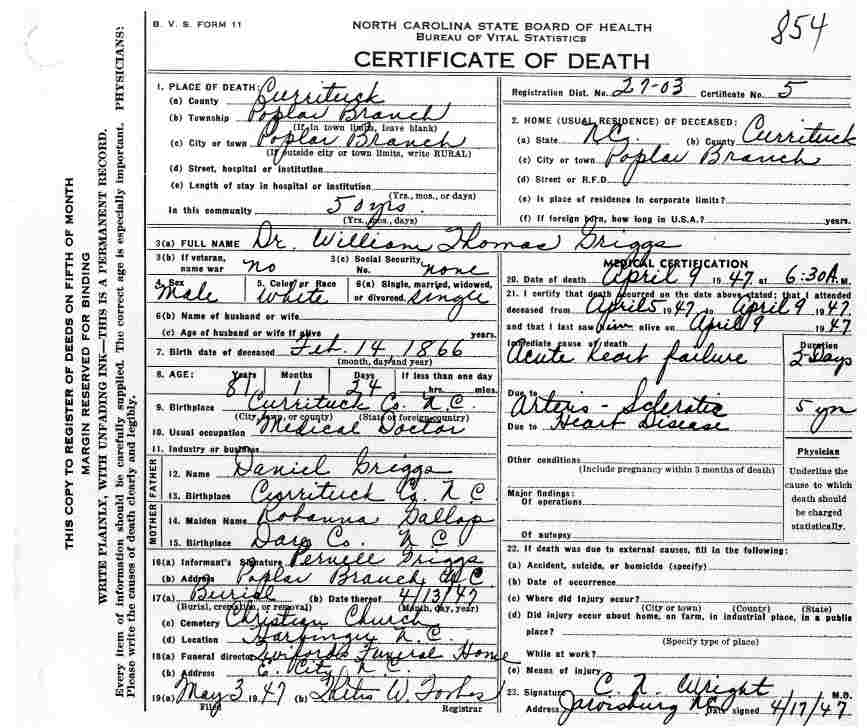 B. V. S. FORM 11
NORTH CAROLINA STATE BOARD OF HEALTH
BUREAU OF VITAL STATISTICS
854
CERTIFICATE OF DEATH
THIS COPY TO REGISTER OF DEEDS ON FIFTH OF MONTH
MARGIN RESERVED FOR BINDING
WRITE PLAINLY, WITH UNFADING INK—THIS IS A PERMANENT RECORD.
Every item of information should be carefully supplied. The correct age is especially important. PHYSICIANS:
Please write the causes of death clearly and legibly.
Registration Dist. No. 27-03 Certificate No. 5
1. PLACE OF DEATH:
(a) County Currituck
(b) Township Poplar Branch
(If in town limits, leave blank)
(c) City or town Poplar Branch
(If outside city or town limits, write RURAL)
(d) Street, hospital or institution
(e) Length of stay in hospital or institution
(Yrs., mos., or days)
In this community 50 yrs.
(Yrs., mos., days)
2. HOME (USUAL RESIDENCE) OF DECEASED:
(a) State N.C. (b) County Currituck
(c) City or town Poplar Branch
(d) Street or R.F.D.
(e) Is place of residence in corporate limits?
(f) If foreign born, how long in U.S.A.? years.
3(a) FULL NAME Dr. William Thomas Griggs
3(b) If veteran, name war no 3(c) Social Security No. none
4. Sex Male 5. Color or Race White 6(a) Single, married, widowed, or divorced. Single
6(b) Name of husband or wife
(c) Age of husband or wife if alive years.
7. Birth date of deceased Feb. 14 1866
(month, day and year)
8. AGE: Years 81 Months 1 Days 24 If less than one day hrs. mins.
9. Birthplace Currituck Co. N.C.
(City, town, or county) (State or foreign country)
10. Usual occupation Medical Doctor
11. Industry or business
FATHER
12. Name Daniel Griggs
13. Birthplace Currituck Co. N C.
MOTHER
14. Maiden Name Gallop
15. Birthplace Dare Co. N C
16(a) Informant's Signature Pernell Griggs
(b) Address Poplar Branch, N.C.
17(a) Burial (b) Date thereof 4/13/47
(Burial, cremation, or removal) (Month, day, year)
(c) Cemetery Christian Church
(d) Location Harbinger N.C.
18(a) Funeral director Twiford's Funeral Home
(b) Address E. City N.C.
19(a) May 3 1947 (b) W. Forbes
Filed Registrar
MEDICAL CERTIFICATION
20. Date of death April 9 1947 at 6:30 A.M.
21. I certify that death occurred on the date above stated; that I attended
deceased from April 5 1947 to April 9 1947
and that I last saw him alive on April 9 1947.
Immediate cause of death Duration
Acute heart failure 2 days
Due to Arterio-Sclerotic 5 yrs
Due to Heart Disease
Other conditions
(Include pregnancy within 3 months of death)
Major findings:
Of operations
Of autopsy
Physician
Underline the
cause to which
death should
be charged
statistically.
22. If death was due to external causes, fill in the following:
(a) Accident, suicide, or homicide (specify)
(b) Date of occurrence
(c) Where did injury occur?
(City or town) (County) (State)
(d) Did injury occur about home, on farm, in industrial place, in a public
place?
(Specify type of place)
While at work?
(e) Means of injury
23. Signature C. N. Wright M.D.
Address Jarvisburg NC Date signed 4/17/47